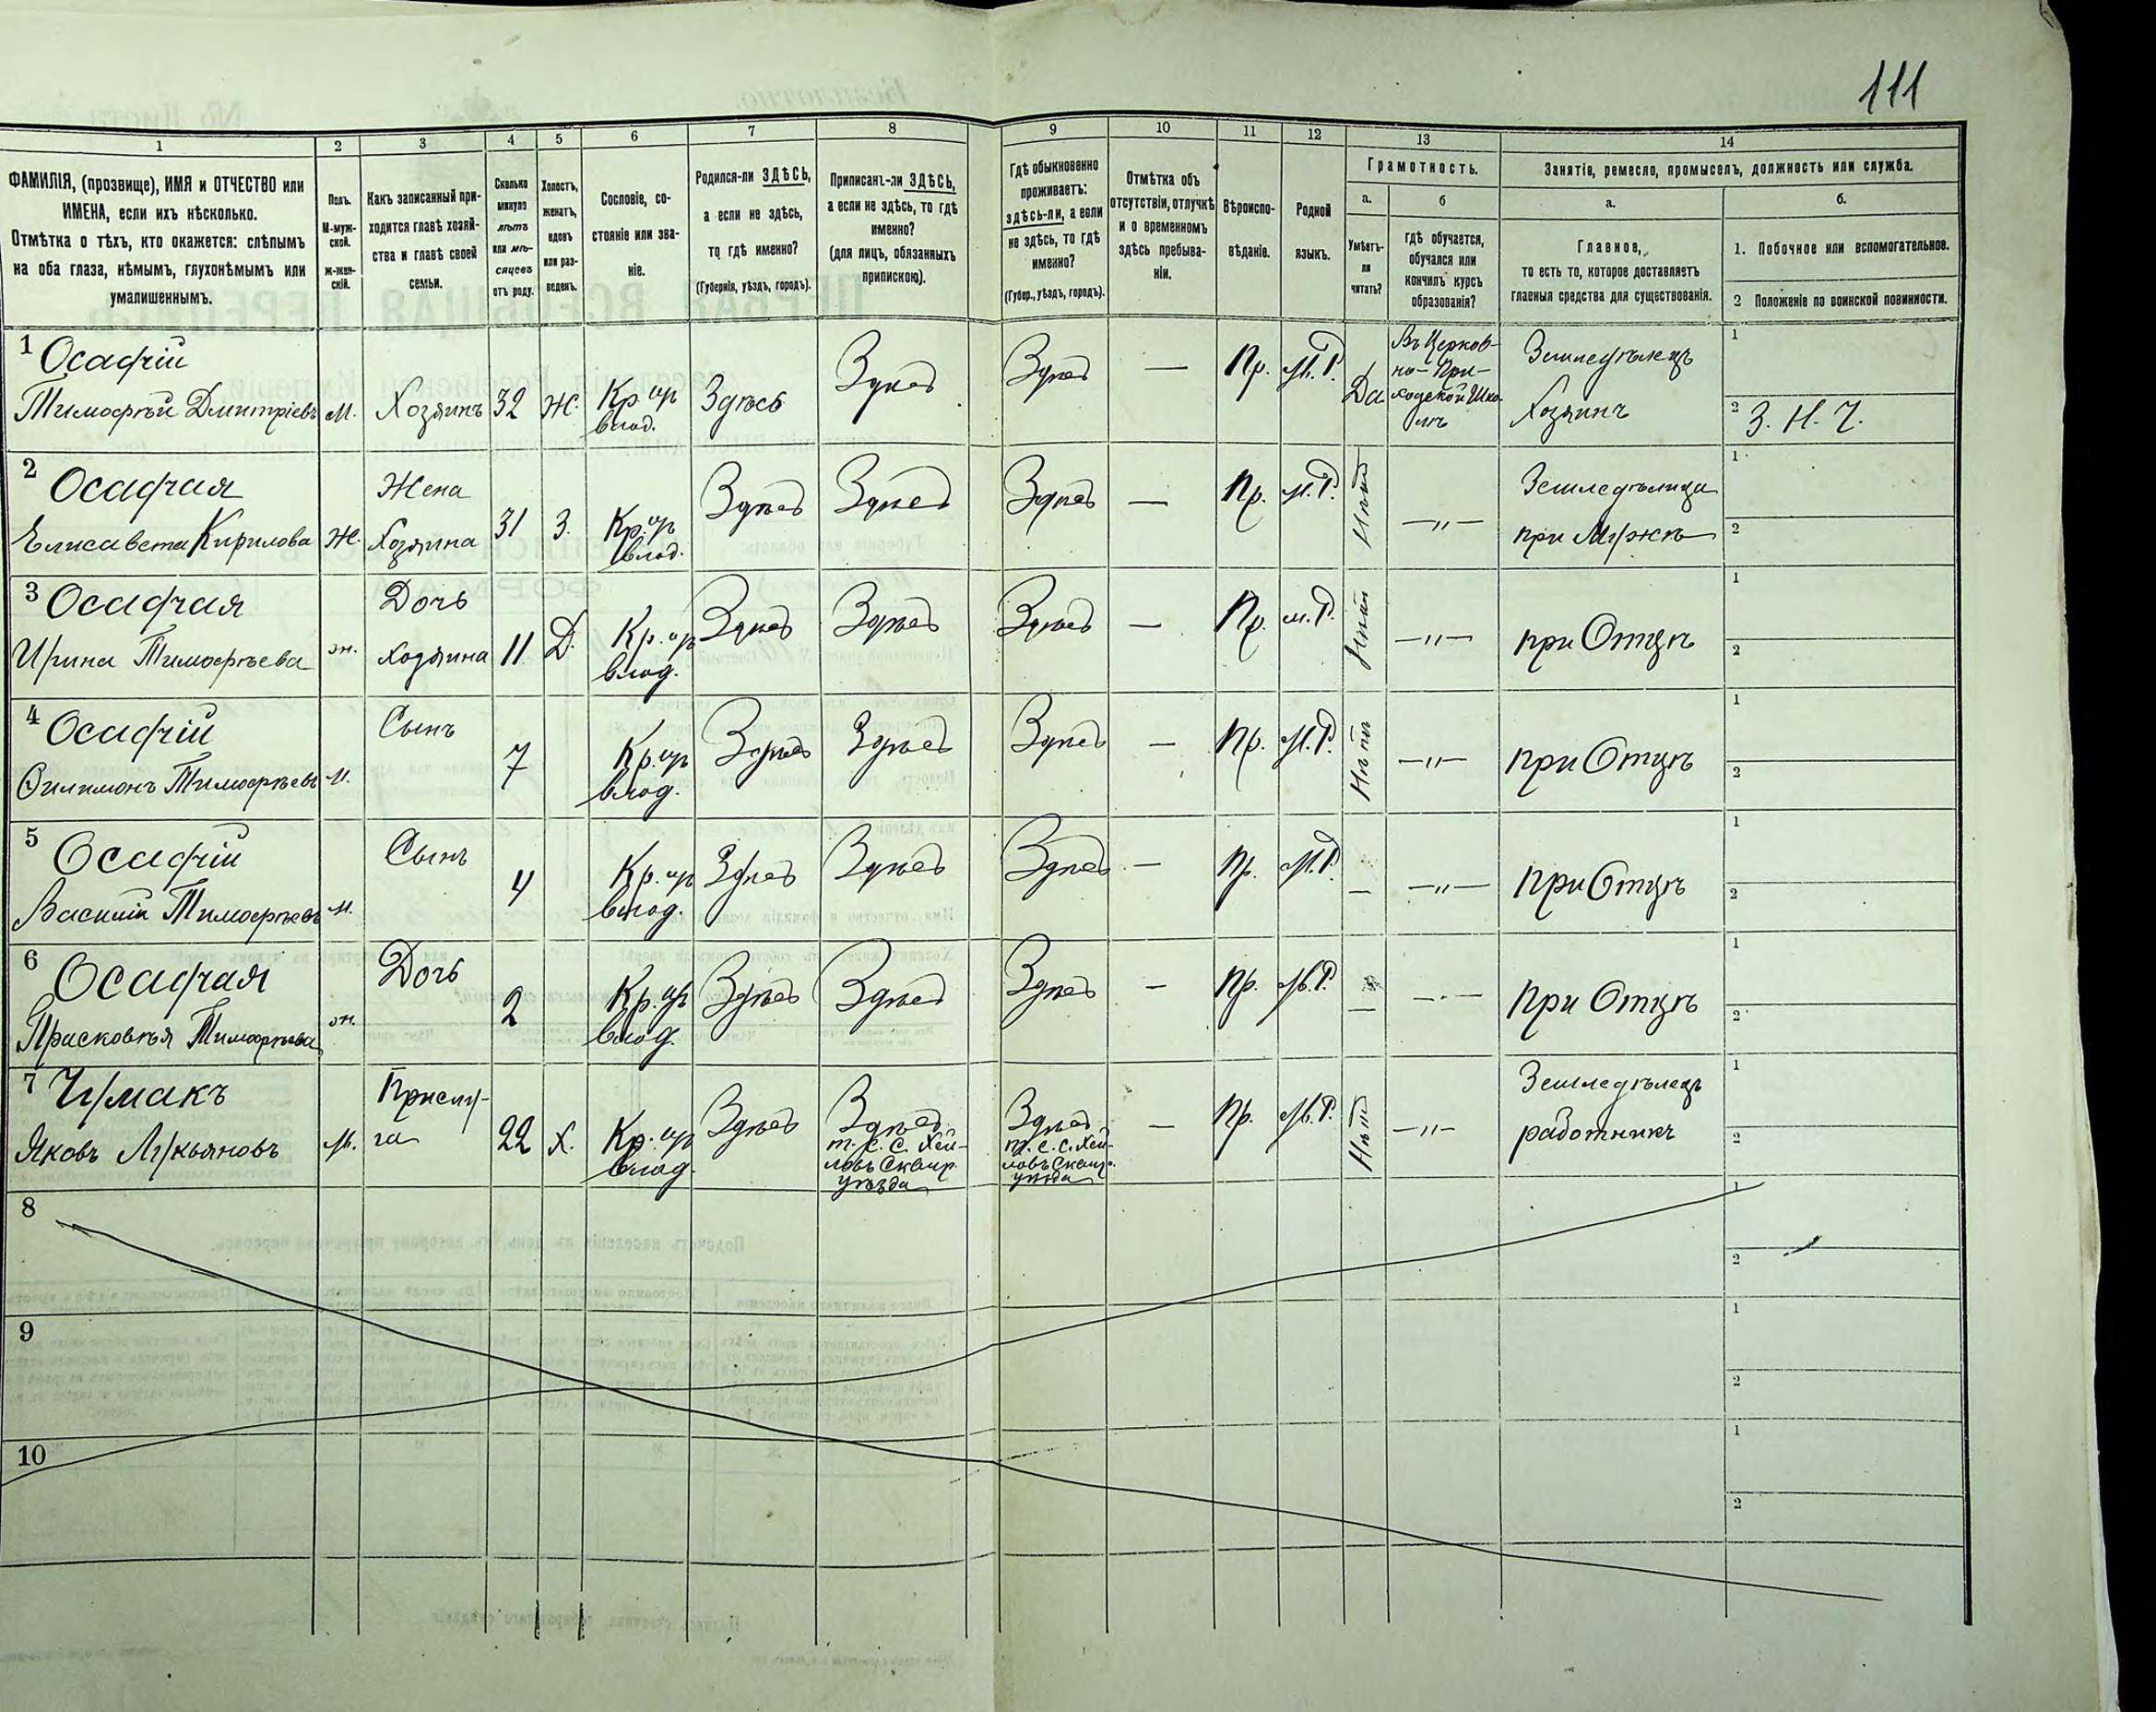 111
1
2
3
4
5
6
7
8
9
10
11
12
13
14
ФАМИЛІЯ, (прозвище), ИМЯ и ОТЧЕСТВО или
ИМЕНА, если ихъ нѣсколько.
Отмѣтка о тѣхъ, кто окажется: слѣпымъ
на оба глаза, нѣмымъ, глухонѣмымъ или
умалишеннымъ.
Полъ.
М-муж-
ской.
ж-жен-
скій.
Какъ записанный при-
ходится главѣ хозяй-
ства и главѣ своей
семьи.
Сколько
минуло
лѣтъ
или мѣ-
сяцевъ
отъ роду.
Холостъ,
женатъ,
вдовъ
или раз-
веденъ.
Сословіе, со-
стояніе или зва-
ніе.
Родился-ли ЗДѢСЬ,
а если не здѣсь,
то гдѣ именно?
(Губернія, уѣздъ, городъ).
Приписанъ-ли ЗДѢСЬ,
а если не здѣсь, то гдѣ
именно?
(для лицъ, обязанныхъ
припискою).
Гдѣ обыкновенно
проживаетъ:
здѣсь-ли, а если
не здѣсь, то гдѣ
именно?
(Губер., уѣздъ, городъ).
Отмѣтка объ
отсутствіи, отлучкѣ
и о временномъ
здѣсь пребыва-
ніи.
Вѣроиспо-
вѣданіе.
Родной
языкъ.
Грамотность.
а.
б
Умѣетъ-
ли
читать?
гдѣ обучается,
обучался или
кончилъ курсъ
образованія?
Занятіе, ремесло, промыселъ, должность или служба.
а.
б.
Главное,
то есть то, которое доставляетъ
главныя средства для существованія.
1. Побочное или вспомогательное.
2 Положеніе по воинской повинности.
1 Осафчій
Тимофѣй Дмитріевъ
М. Хозяинъ 32 Ж. Кр. ир влад. Здѣсь Здѣсь Здѣсь — Пр. М.Р. Да
Въ Церков-
но-При-
ходской Шко-
лѣ
Земледѣлецъ
Хозяинъ
1
2 З. Н. Ч.
2 Осафчая
Елисавета Кирилова
Ж. Жена Хозяина 31 З. Кр. ир влад. Здѣсь Здѣсь Здѣсь — Пр. М.Р. Нѣтъ —„—
Земледѣлица
при Мужѣ
1
2
3 Осафчая
Ирина Тимофѣева
ж. Дочь Хозяина 11 Д. Кр. ир влад. Здѣсь Здѣсь Здѣсь — Пр. М.Р. Нѣтъ —„— при Отцѣ
1
2
4 Осафчій
Филимонъ Тимофѣевъ
М. Сынъ 7 Кр. ир влад. Здѣсь Здѣсь Здѣсь — Пр. М.Р. Нѣтъ —„— при Отцѣ
1
2
5 Осафчій
Василій Тимофѣевъ
М. Сынъ 4 Кр. ир влад. Здѣсь Здѣсь Здѣсь — Пр. М.Р. — —„— при Отцѣ
1
2
6 Осафчая
Прасковья Тимофѣева
ж. Дочь 2 Кр. ир влад. Здѣсь Здѣсь Здѣсь — Пр. М.Р. — —„— при Отцѣ
1
2
7 Чумакъ
Яковъ Лукьяновъ
М. Прислу-
га 22 Х. Кр. ир влад. Здѣсь
Здѣсь
уѣзда
Здѣсь
уѣзда
— Пр. М.Р. Нѣтъ —„—
Земледѣлецъ
работникъ
1
2
8
1
2
9
1
2
10
1
2